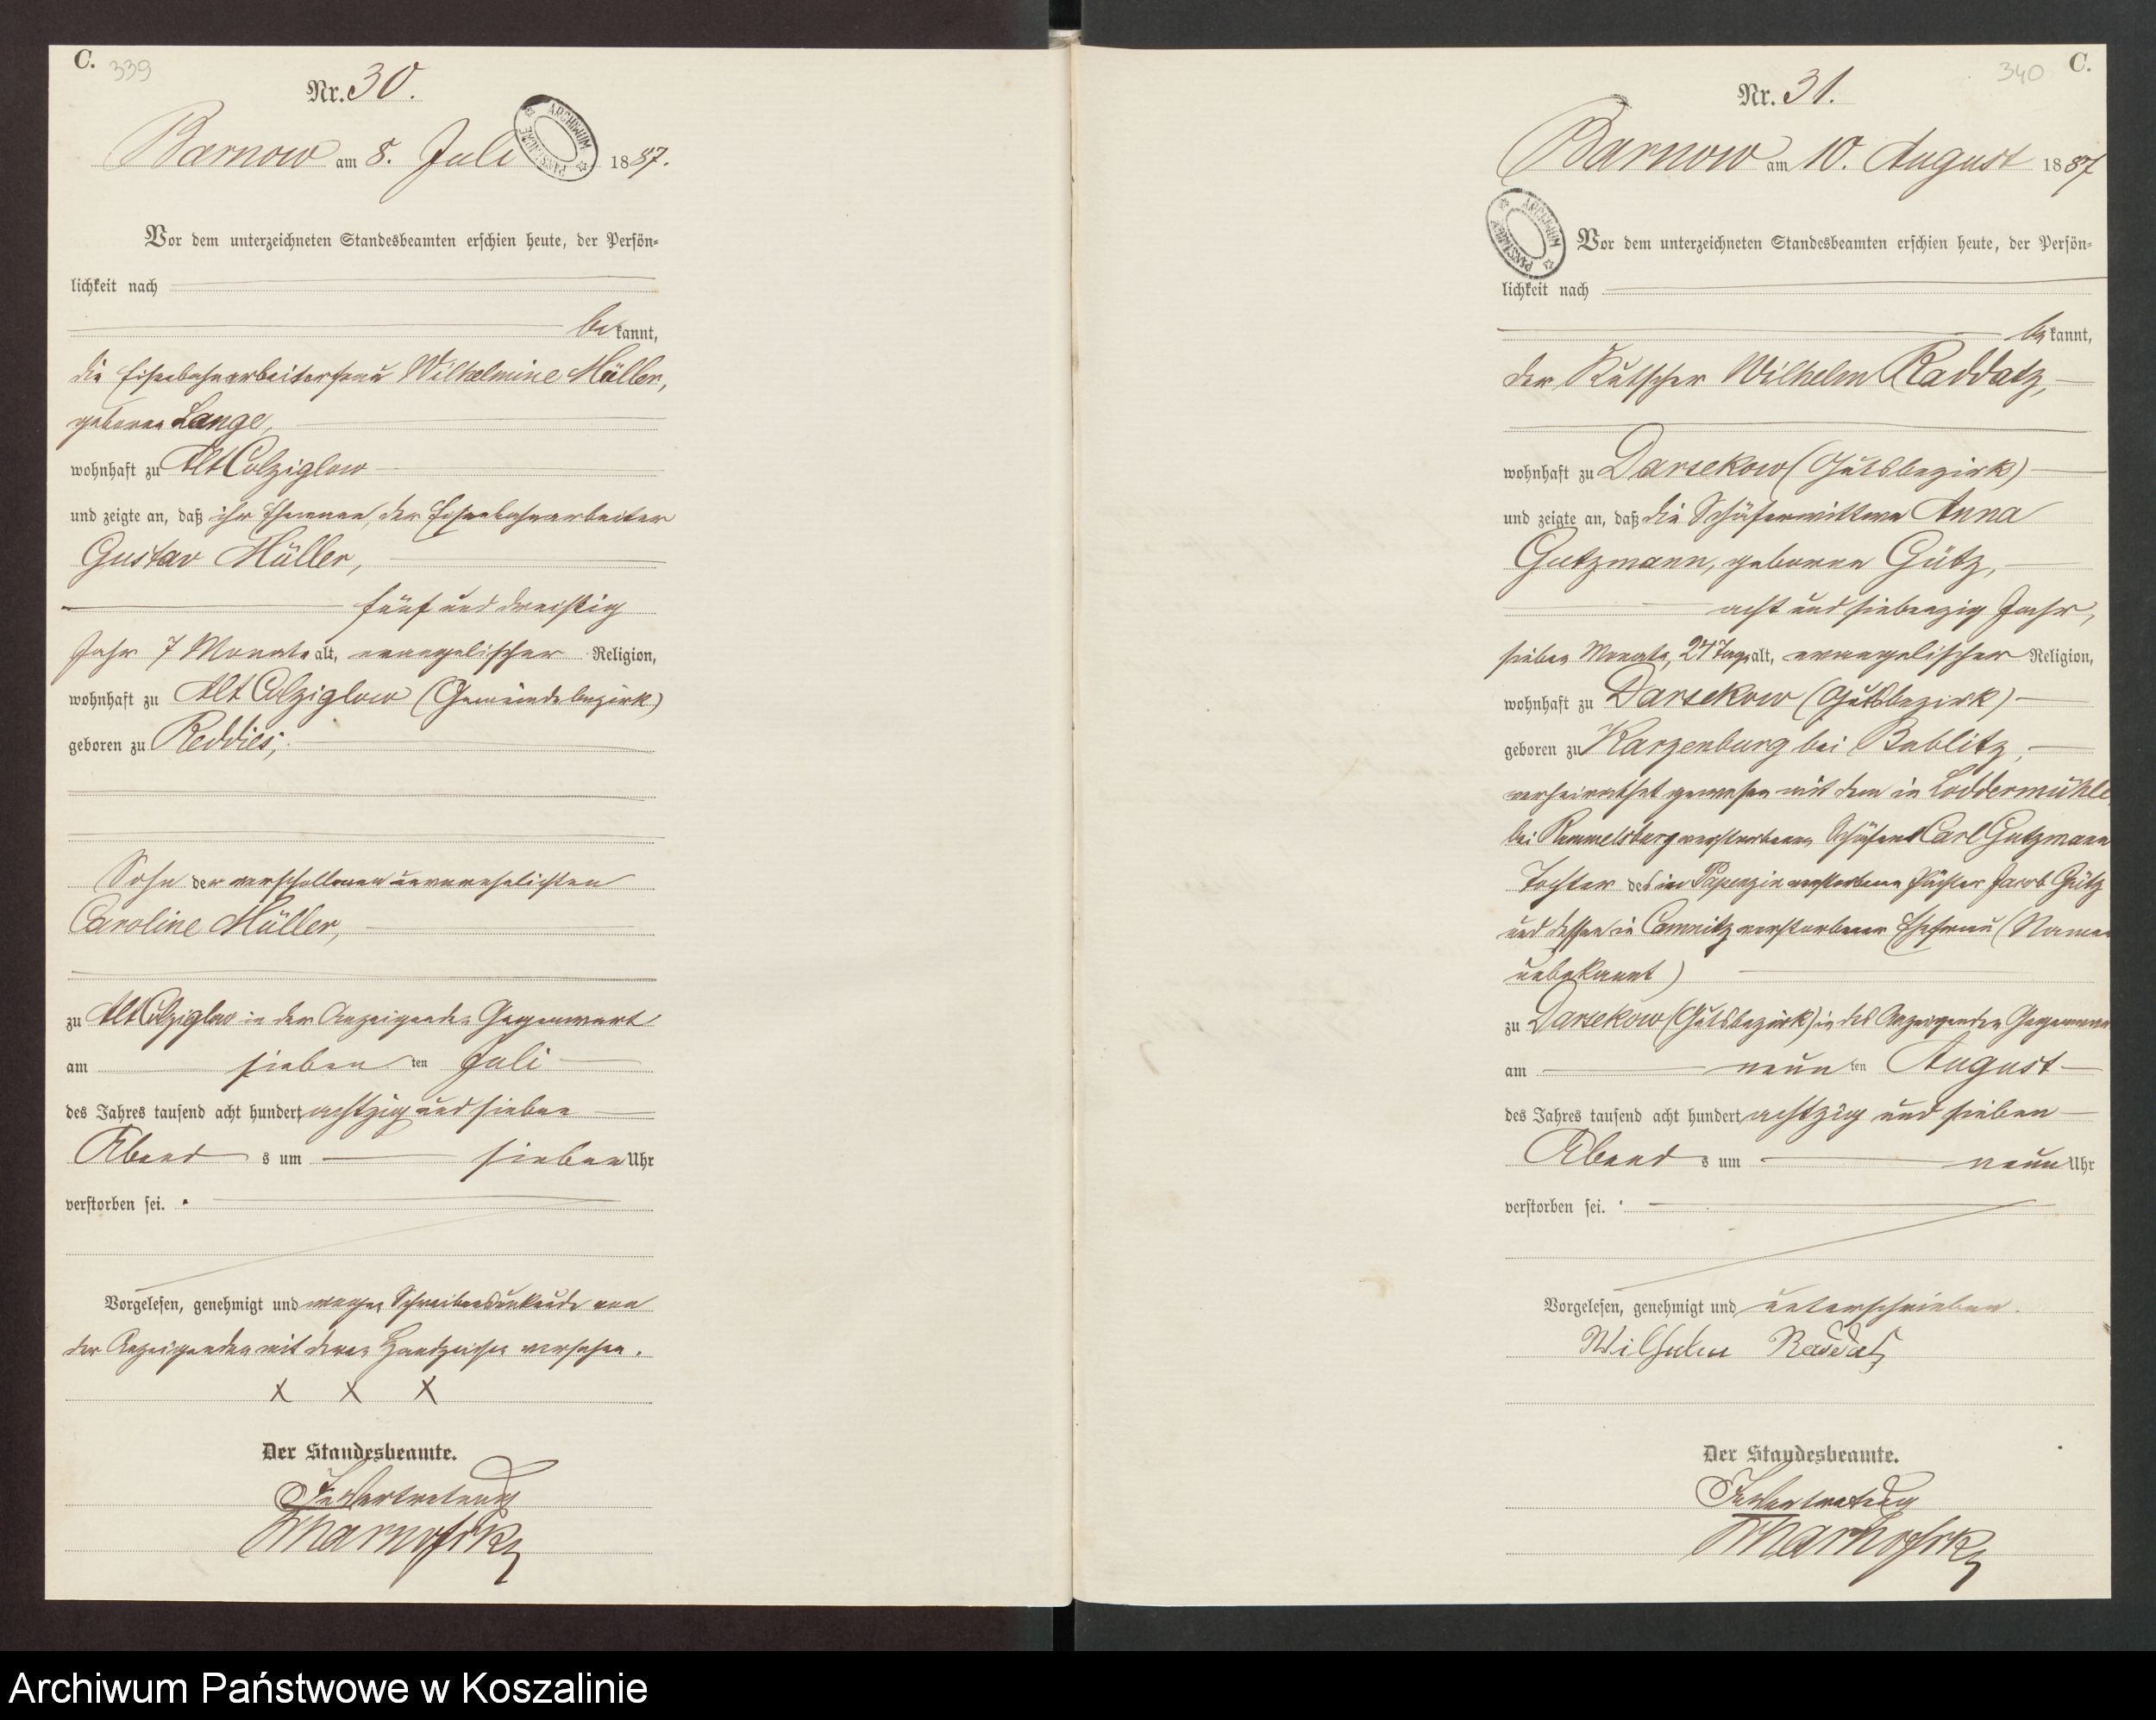 C. 339
Nr. 30.
Barnow am 8. Juli 1887.
ARCHIWUM PAŃSTWOWE
Vor dem unterzeichneten Standesbeamten erschien heute, der Persön-
lichkeit nach
bekannt,
die Eisenbahnarbeiterfrau Wilhelmine Müller,
geborne Lange,
wohnhaft zu Alt Colziglow
und zeigte an, daß ihr Ehemann, der Eisenbahnarbeiter
Gustav Müller,
fünf und dreißig
Jahr 7 Monate alt, evangelischer Religion,
wohnhaft zu Alt Colziglow (Gemeindebezirk)
geboren zu Reddies;
Sohn der verschollenen unverehelichten
Caroline Müller,
zu Alt Colziglow in der Anzeigenden Gegenwart
am sieben ten Juli
des Jahres tausend acht hundert achtzig und sieben
Abend s um sieben Uhr
verstorben sei.
Vorgelesen, genehmigt und wegen Schreibensunkunde von
der Anzeigenden mit deren Handzeichen versehen.
X X X
Der Standesbeamte.
In Vertretung
C. 340
Nr. 31.
Barnow am 10. August 1887
ARCHIWUM PAŃSTWOWE
Vor dem unterzeichneten Standesbeamten erschien heute, der Persön-
lichkeit nach
bekannt,
der Kutscher Wilhelm Raddatz,
wohnhaft zu Darsekow (Gutsbezirk)
und zeigte an, daß die Schäferwittwe Anna
Gutzmann, geborne Gütz,
acht und siebenzig Jahr,
sieben Monate, 27 Tage alt, evangelischer Religion,
wohnhaft zu Darsekow (Gutsbezirk)
geboren zu Karzenburg bei Bublitz,
verheirathet gewesen mit dem in Loddermühle
bei Rummelsburg verstorbenen Schäfer Carl Gutzmann
Tochter des in Papenzin verstorbenen Pächter Jacob Gütz
und dessen in Camnitz verstorbenen Ehefrau (Namen
unbekannt)
zu Darsekow (Gutsbezirk) in des Anzeigenden Gegenwart
am neun ten August
des Jahres tausend acht hundert achtzig und sieben
Abend s um neun Uhr
verstorben sei.
Vorgelesen, genehmigt und unterschrieben.
Wilhelm Raddatz
Der Standesbeamte.
In Vertretung
Archiwum Państwowe w Koszalinie